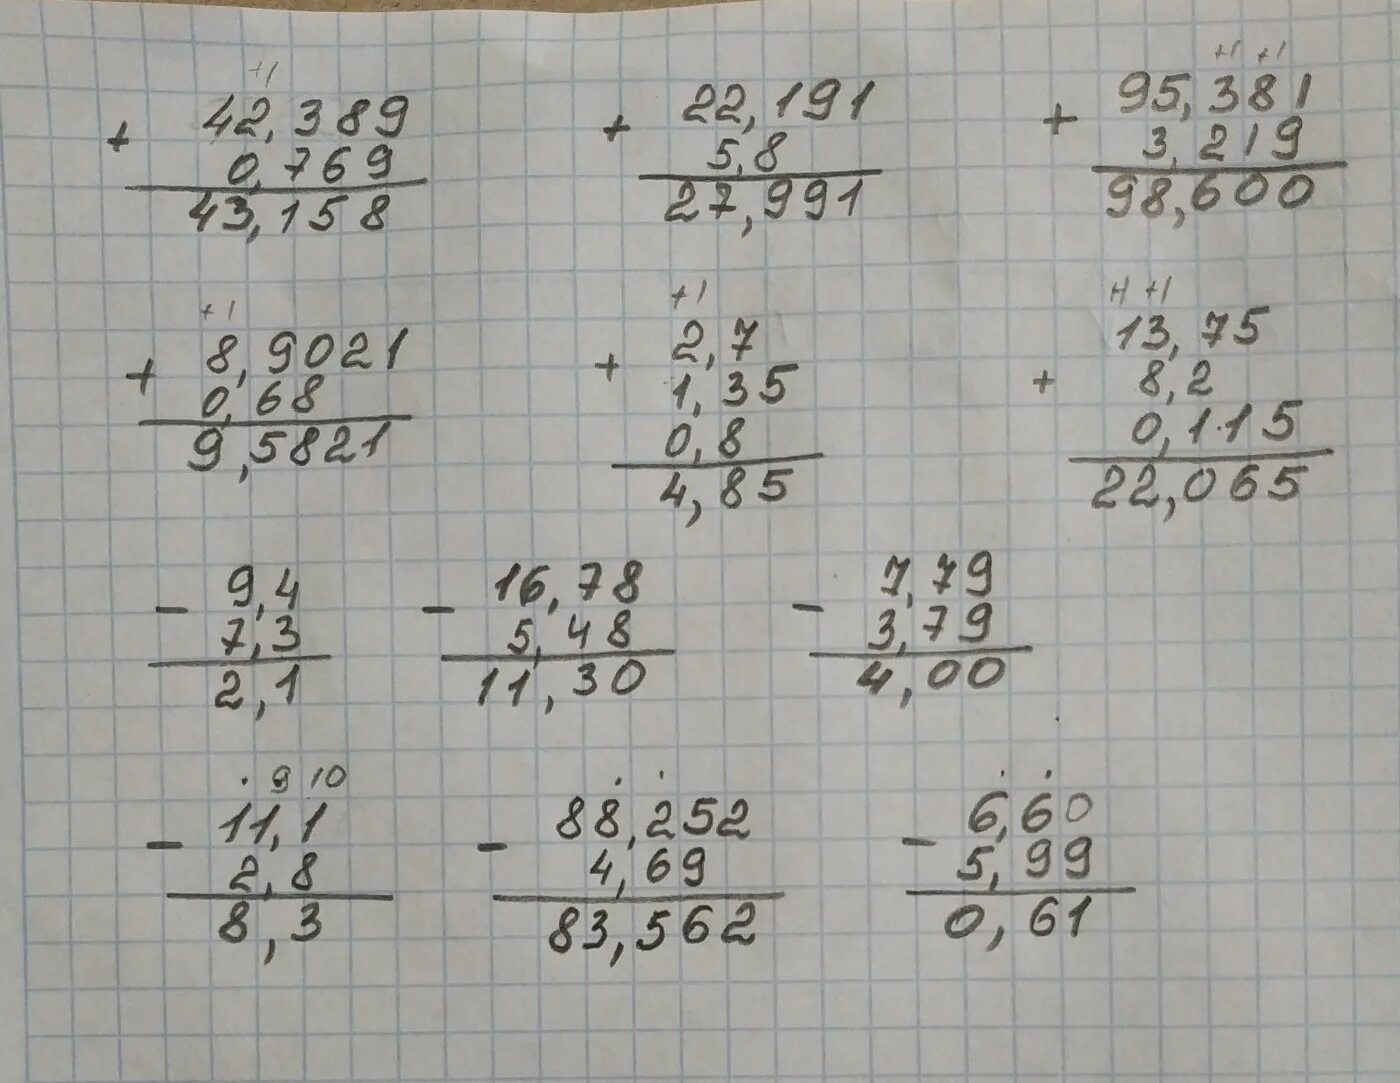 +1
42,389
+ 0,769
43,158
22,191
+ 5,8
27,991
+1 +1
95,381
+ 3,219
98,600
+1
8,9021
+ 0,68
9,5821
+1
2,7
+ 1,35
0,8
4,85
+1 +1
13,75
+ 8,2
0,115
22,065
9,4
- 7,3
2,1
16,78
- 5,48
11,30
7,79
- 3,79
4,00
. 9 10
11,1
- 2,8
8,3
. .
88,252
- 4,69
83,562
. .
6,60
- 5,99
0,61